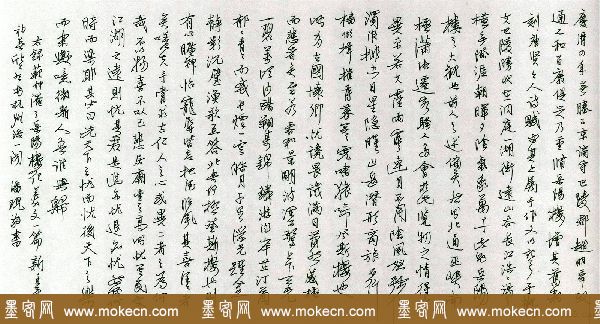 慶曆四年春滕子京謫守巴陵郡越明年政
通人和百廢俱興乃重修岳陽樓增其舊制
刻唐賢今人詩賦於其上屬予作文以記之予觀
夫巴陵勝狀在洞庭一湖銜遠山吞長江浩浩湯湯
橫無際涯朝暉夕陰氣象萬千此則岳陽
樓之大觀也前人之述備矣然則北通巫峽南
極瀟湘遷客騷人多會於此覽物之情得無
異乎若夫霪雨霏霏連月不開陰風怒號
濁浪排空日星隱曜山岳潛形商旅不行
檣傾楫摧薄暮冥冥虎嘯猿啼登斯樓也
則有去國懷鄉憂讒畏譏滿目蕭然感極
而悲者矣至若春和景明波瀾不驚上下天光
一碧萬頃沙鷗翔集錦鱗游泳岸芷汀蘭
郁郁青青而或長煙一空皓月千里浮光躍金
靜影沉璧漁歌互答此樂何極登斯樓也則
有心曠神怡寵辱皆忘把酒臨風其喜洋洋者
矣嗟夫予嘗求古仁人之心或異二者之為何
哉不以物喜不以己悲居廟堂之高則憂其民處
江湖之遠則憂其君是進亦憂退亦憂然則何
時而樂耶其必曰先天下之憂而憂後天下之樂
而樂歟噫微斯人吾誰與歸
范仲淹之岳陽樓
墨客网 墨客网 墨客网 墨客网
www.mokecn.com www.mokecn.com www.mokecn.com www.mokecn.com